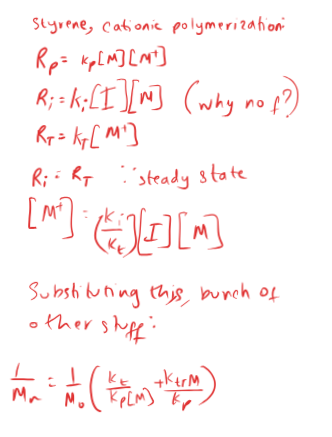 Styrene, cationic polymerization:
Rp = kp[M][M⁺]
Ri = ki[I][M] (why no f?)
RT = kT[M⁺]
Ri = RT ∵ steady state
[M⁺] = (ki/kt)[I][M]
Substituting this, bunch of
other stuff:
1/Mn = 1/M₀ (kt/kp[M] + ktrM/kp)